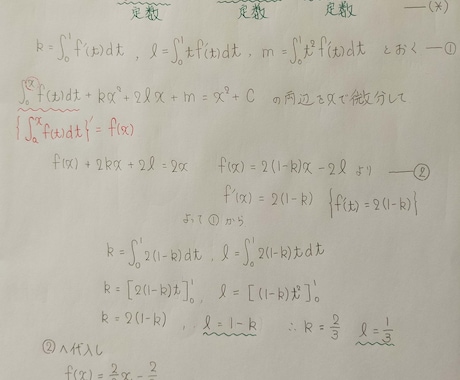 定数 定数 定数 ―(*)
k=∫₀¹f'(t)dt , l=∫₀¹tf'(t)dt , m=∫₀¹t²f'(t)dt とおく ―①
∫₀ˣf(t)dt + kx²+2lx+m = x²+C の両辺をxで微分して
{∫ₐˣf(t)dt}' = f(x)
f(x)+2kx+2l=2x f(x)=2(1-k)x-2l より ―②
f'(x)=2(1-k) {f'(t)=2(1-k)}
よって①から
k=∫₀¹2(1-k)dt , l=∫₀¹2(1-k)tdt
k=[2(1-k)t]₀¹ , l=[(1-k)t²]₀¹
k=2(1-k) , l=1-k ∴k=2/3 l=1/3
②へ代入し
f(x)=2/3x-2/